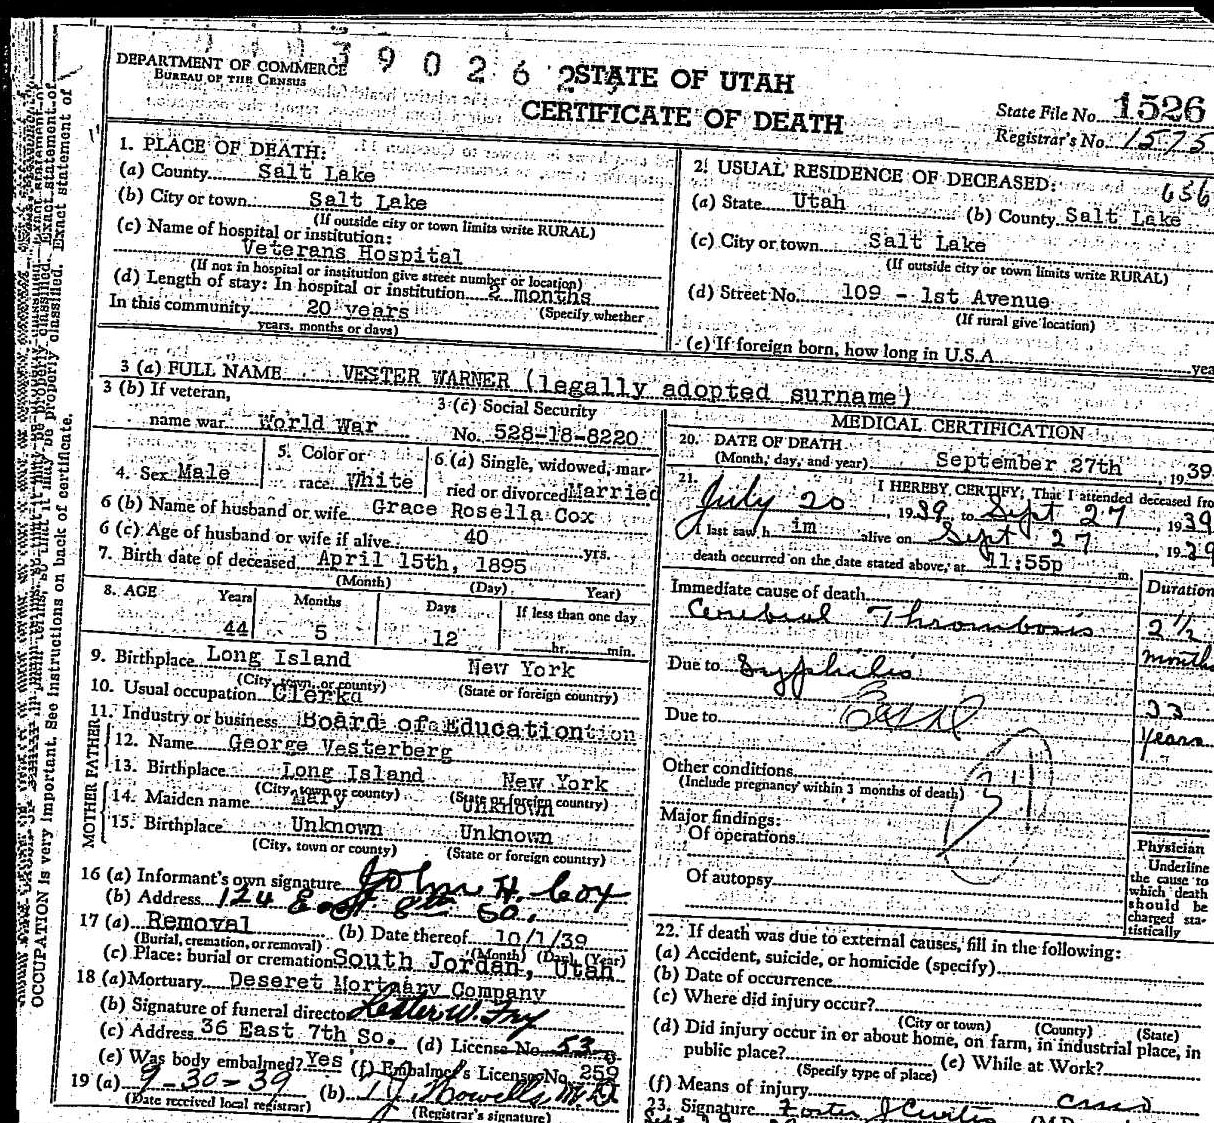 DEPARTMENT OF COMMERCE
BUREAU OF THE CENSUS
3 9 0 2 6 2
STATE OF UTAH
CERTIFICATE OF DEATH
State File No. 1526
Registrar's No. 1575
1. PLACE OF DEATH:
(a) County Salt Lake
(b) City or town Salt Lake
(If outside city or town limits write RURAL)
(c) Name of hospital or institution:
Veterans Hospital
(If not in hospital or institution give street number or location)
(d) Length of stay: In hospital or institution 2 months
In this community 20 years (Specify whether
years, months or days)
2. USUAL RESIDENCE OF DECEASED: 636
(a) State Utah (b) County Salt Lake
(c) City or town Salt Lake
(If outside city or town limits write RURAL)
(d) Street No. 109 - 1st Avenue
(If rural give location)
(e) If foreign born, how long in U.S.A. yea
3 (a) FULL NAME VESTER WARNER (legally adopted surname)
3 (b) If veteran,
name war World War
3 (c) Social Security
No. 528-18-8220
4. Sex Male
5. Color or
race White
6 (a) Single, widowed, mar-
ried or divorced Married
6 (b) Name of husband or wife Grace Rosella Cox
6 (c) Age of husband or wife if alive 40 yrs.
7. Birth date of deceased April 15th, 1895
(Month) (Day) Year)
8. AGE Years Months Days If less than one day
44 5 12 hr. min.
9. Birthplace Long Island New York
(City, town, or county) (State or foreign country)
10. Usual occupation Clerk
11. Industry or business Board of Education
FATHER
12. Name George Vesterberg
13. Birthplace Long Island New York
(City, town or county) (State or foreign country)
MOTHER
14. Maiden name Mary Unknown
15. Birthplace Unknown Unknown
(City, town or county) (State or foreign country)
16 (a) Informant's own signature John H. Cox
(b) Address 124 East 8th So.
17 (a) Removal (b) Date thereof 10/1/39
(Burial, cremation, or removal) (Month) (Day) (Year)
(c) Place: burial or cremation South Jordan, Utah
18 (a) Mortuary Deseret Mortuary Company
(b) Signature of funeral director
(c) Address 36 East 7th So. (d) License No. 53
(e) Was body embalmed? Yes (f) Embalmer's License No. 259
19 (a) 9-30-39 (b) M.D.
(Date received local registrar) (Registrar's signature)
MEDICAL CERTIFICATION
20. DATE OF DEATH
(Month, day, and year) September 27th, 1939
21. I HEREBY CERTIFY, That I attended deceased fro
July 20, 1939, to Sept 27, 1939
I last saw h im alive on Sept 27 1939
death occurred on the date stated above, at 11:55p m.
Immediate cause of death Duration
Cerebral Thrombosis 2 1/2
months
Due to Syphilis
33
Due to years
Other conditions
(Include pregnancy within 3 months of death)
Major findings:
Of operations
Of autopsy
Physician
Underline
the cause to
which death
should be
charged sta-
tistically
22. If death was due to external causes, fill in the following:
(a) Accident, suicide, or homicide (specify)
(b) Date of occurrence
(c) Where did injury occur?
(City or town) (County) (State)
(d) Did injury occur in or about home, on farm, in industrial place, in
public place? (e) While at Work?
(Specify type of place)
(f) Means of injury
23. Signature Foster J Curtis
OCCUPATION is very important. See instructions on back of certificate.